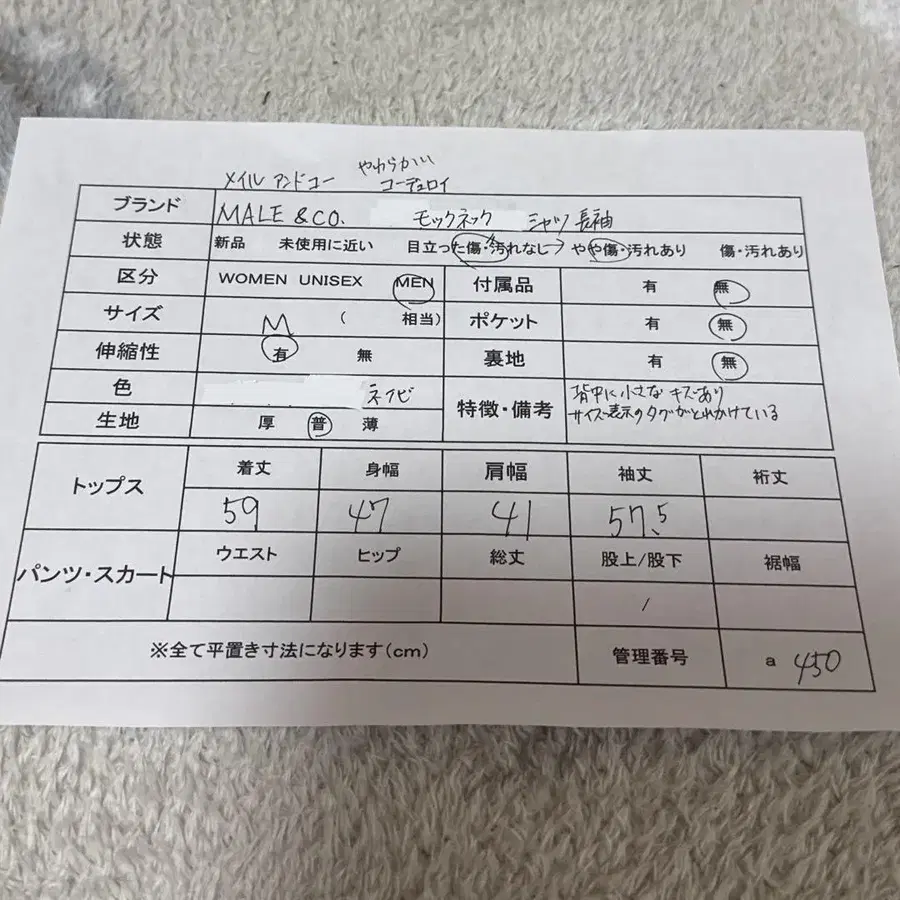 メイル アンドコー やわらかい
コーデュロイ
ブランド MALE & CO. モックネック シャツ 長袖
状態 新品 未使用に近い 目立った傷・汚れなし → やや傷・汚れあり 傷・汚れあり
区分 WOMEN UNISEX MEN 付属品 有 無
サイズ M ( 相当) ポケット 有 無
伸縮性 有 無 裏地 有 無
色 ネイビ 特徴・備考 背中に小さな キズあり
サイズ表示のタグがとれかけている
生地 厚 普 薄
トップス 着丈 身幅 肩幅 袖丈 裄丈
59 47 41 57.5
パンツ・スカート ウエスト ヒップ 総丈 股上/股下 裾幅
/
※全て平置き寸法になります(cm) 管理番号 a 450